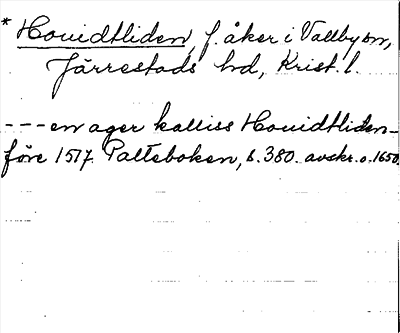 * Houidtliden, f. åker i Vallby sn,
Järrestads hd, Krist. l.
--- en ager kalliss Houidtliden -
före 1517. Palteboken, s. 380. avskr. o. 1650.